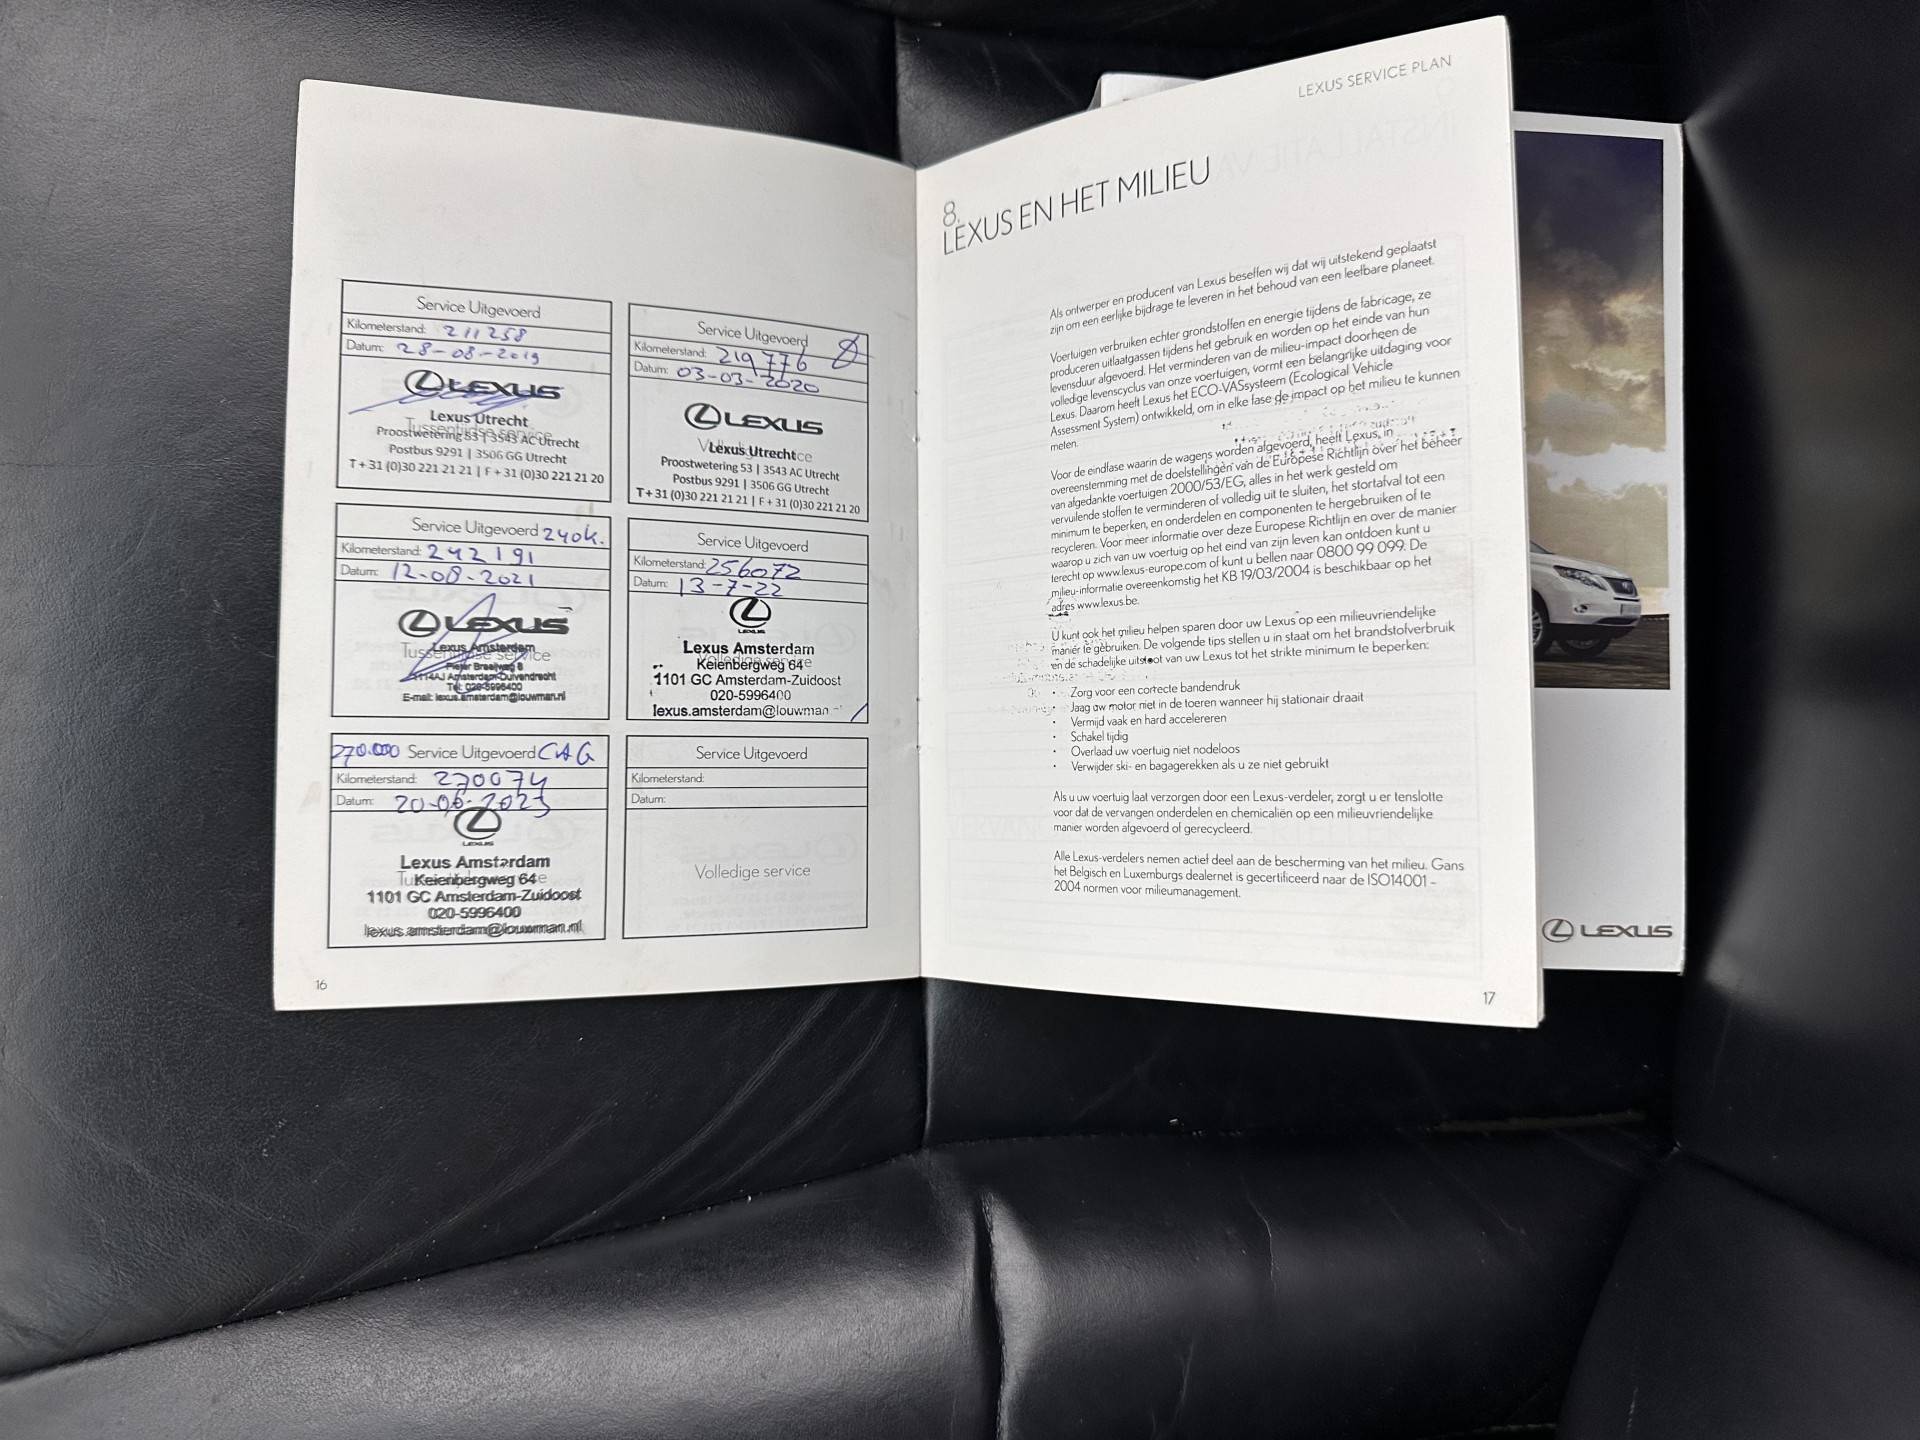 Service Uitgevoerd
Kilometerstand: 211258
Datum: 28-08-2019
LEXUS
Lexus Utrecht
Tussentijdse service
Proostwetering 53 | 3543 AC Utrecht
Postbus 9291 | 3506 GG Utrecht
T + 31 (0)30 221 21 21 | F + 31 (0)30 221 21 20
Service Uitgevoerd
Kilometerstand: 219776
Datum: 03-03-2020
LEXUS
Lexus Utrecht
Proostwetering 53 | 3543 AC Utrecht
Postbus 9291 | 3506 GG Utrecht
T + 31 (0)30 221 21 21 | F + 31 (0)30 221 21 20
Service Uitgevoerd 240k.
Kilometerstand: 242191
Datum: 12-08-2021
LEXUS
Lexus Amsterdam
Tussentijdse service
Pieter Braaijweg 8
1114AJ Amsterdam-Duivendrecht
Tel: 020-5996400
E-mail: lexus.amsterdam@louwman.nl
Service Uitgevoerd
Kilometerstand: 256072
Datum: 13-7-22
LEXUS
Lexus Amsterdam
Keienbergweg 64
1101 GC Amsterdam-Zuidoost
020-5996400
lexus.amsterdam@louwman
270.000 Service Uitgevoerd
Kilometerstand: 270074
Datum: 20-06-2023
LEXUS
Lexus Amsterdam
Keienbergweg 64
1101 GC Amsterdam-Zuidoost
020-5996400
lexus.amsterdam@louwman.nl
Service Uitgevoerd
Kilometerstand:
Datum:
Volledige service
16
LEXUS SERVICE PLAN
8.
LEXUS EN HET MILIEU
Als ontwerper en producent van Lexus beseffen wij dat wij uitstekend geplaatst
zijn om een eerlijke bijdrage te leveren in het behoud van een leefbare planeet.
Voertuigen verbruiken echter grondstoffen en energie tijdens de fabricage, ze
produceren uitlaatgassen tijdens het gebruik en worden op het einde van hun
levensduur afgevoerd. Het verminderen van de milieu-impact doorheen de
volledige levenscyclus van onze voertuigen, vormt een belangrijke uitdaging voor
Lexus. Daarom heeft Lexus het ECO-VASsysteem (Ecological Vehicle
Assessment System) ontwikkeld, om in elke fase de impact op het milieu te kunnen
meten.
Voor de eindfase waarin de wagens worden afgevoerd, heeft Lexus, in
overeenstemming met de doelstellingen van de Europese Richtlijn over het beheer
van afgedankte voertuigen 2000/53/EG, alles in het werk gesteld om
vervuilende stoffen te verminderen of volledig uit te sluiten, het stortafval tot een
minimum te beperken, en onderdelen en componenten te hergebruiken of te
recycleren. Voor meer informatie over deze Europese Richtlijn en over de manier
waarop u zich van uw voertuig op het eind van zijn leven kan ontdoen kunt u
terecht op www.lexus-europe.com of kunt u bellen naar 0800 99 099. De
milieu-informatie overeenkomstig het KB 19/03/2004 is beschikbaar op het
adres www.lexus.be.
U kunt ook het milieu helpen sparen door uw Lexus op een milieuvriendelijke
manier te gebruiken. De volgende tips stellen u in staat om het brandstofverbruik
en de schadelijke uitstoot van uw Lexus tot het strikte minimum te beperken:
• Zorg voor een correcte bandendruk
• Jaag uw motor niet in de toeren wanneer hij stationair draait
• Vermijd vaak en hard accelereren
• Schakel tijdig
• Overlaad uw voertuig niet nodeloos
• Verwijder ski- en bagagerekken als u ze niet gebruikt
Als u uw voertuig laat verzorgen door een Lexus-verdeler, zorgt u er tenslotte
voor dat de vervangen onderdelen en chemicaliën op een milieuvriendelijke
manier worden afgevoerd of gerecycleerd.
Alle Lexus-verdelers nemen actief deel aan de bescherming van het milieu. Gans
het Belgisch en Luxemburgs dealernet is gecertificeerd naar de ISO14001 –
2004 normen voor milieumanagement.
17
LEXUS